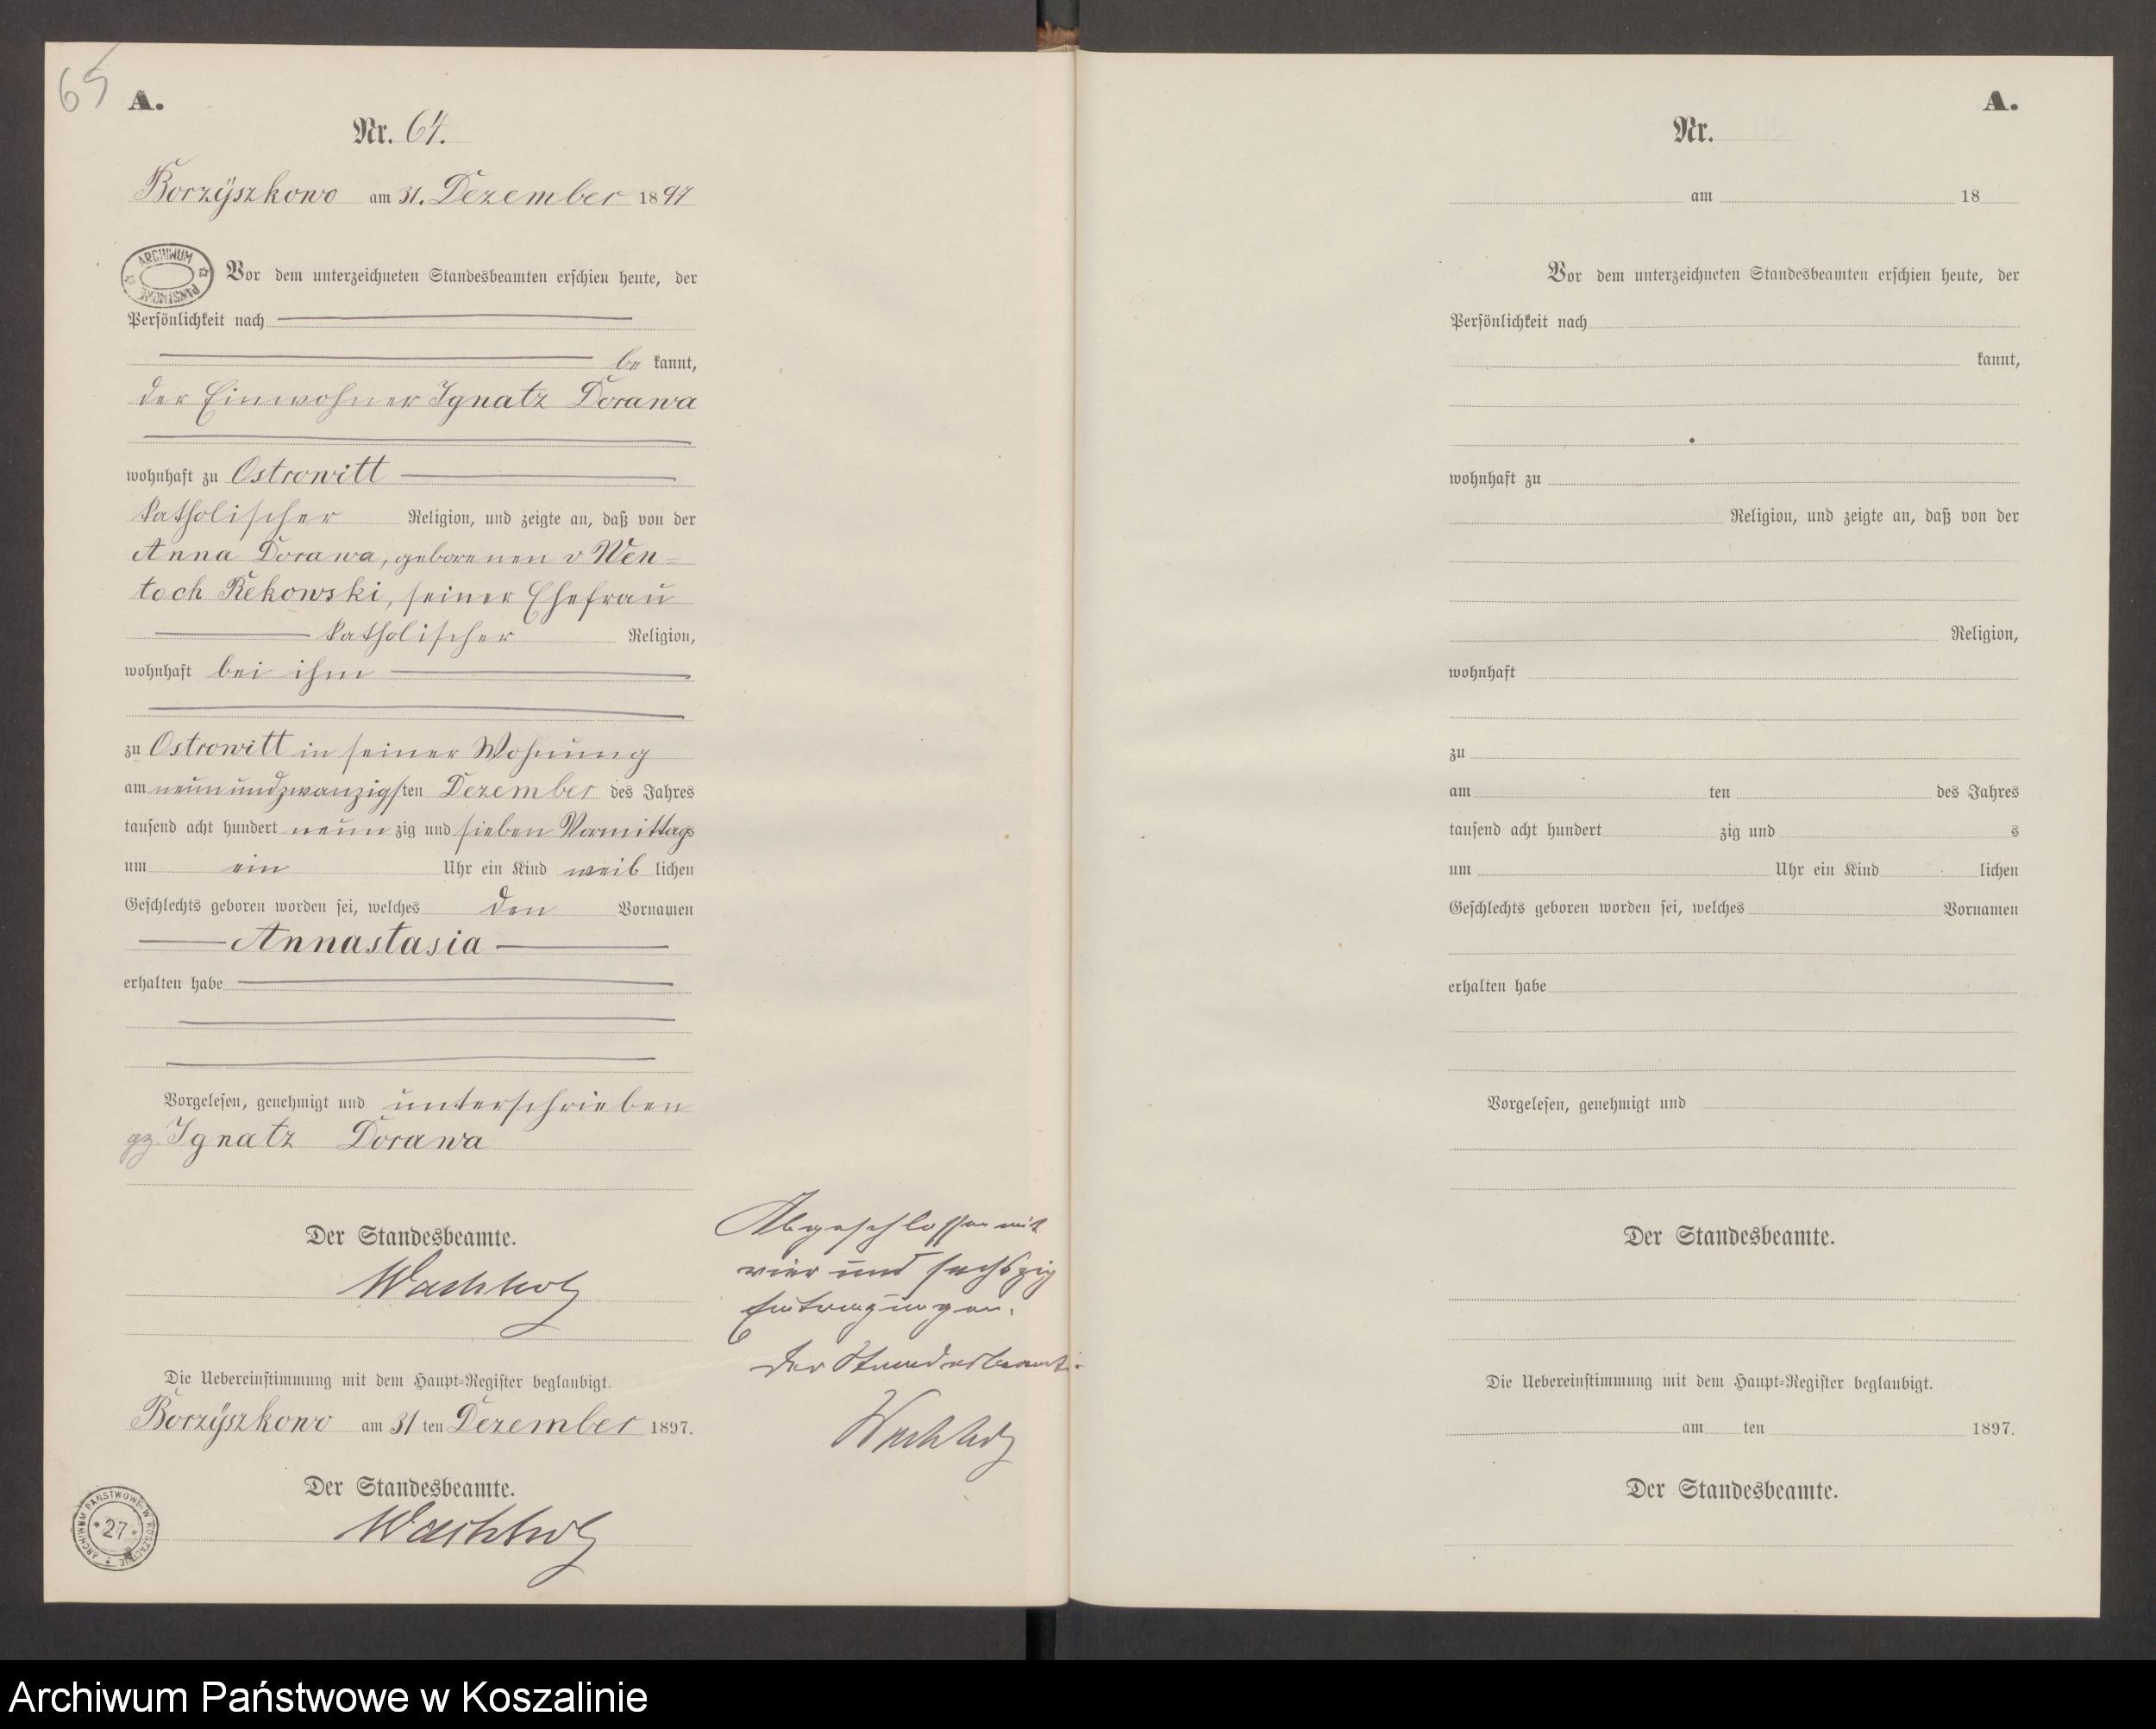 65
A.
Nr. 64.
Borzÿszkowo am 31. Dezember 1897
ARCHIWUM PAŃSTWOWE
Vor dem unterzeichneten Standesbeamten erschien heute, der
Persönlichkeit nach
be kannt,
der Einwohner Ignatz Dorawa
wohnhaft zu Ostrowitt
katholischer Religion, und zeigte an, daß von der
Anna Dorawa, geborenen v Wen=
toch Rekowski, seiner Ehefrau
katholischer Religion,
wohnhaft bei ihm
zu Ostrowitt in seiner Wohnung
am neunundzwanzigsten Dezember des Jahres
tausend acht hundert neun zig und sieben Vormittags
um ein Uhr ein Kind weib lichen
Geschlechts geboren worden sei, welches den Vornamen
Annastasia
erhalten habe
Vorgelesen, genehmigt und unterschrieben
gz. Ignatz Dorawa
Der Standesbeamte.
Wachholz
Die Uebereinstimmung mit dem Haupt=Register beglaubigt.
Borzÿszkowo am 31 ten Dezember 1897.
Der Standesbeamte.
Wachholz
ARCHIWUM PAŃSTWOWE W KOSZALINIE
* 27 *
Abgeschlossen mit
vier und sechszig
Eintragungen.
Der Standesbeamte.
Wachholz
A.
Nr.
am 18
Vor dem unterzeichneten Standesbeamten erschien heute, der
Persönlichkeit nach
kannt,
wohnhaft zu
Religion, und zeigte an, daß von der
Religion,
wohnhaft
zu
am ten des Jahres
tausend acht hundert zig und s
um Uhr ein Kind lichen
Geschlechts geboren worden sei, welches Vornamen
erhalten habe
Vorgelesen, genehmigt und
Der Standesbeamte.
Die Uebereinstimmung mit dem Haupt=Register beglaubigt.
am ten 1897.
Der Standesbeamte.
Archiwum Państwowe w Koszalinie